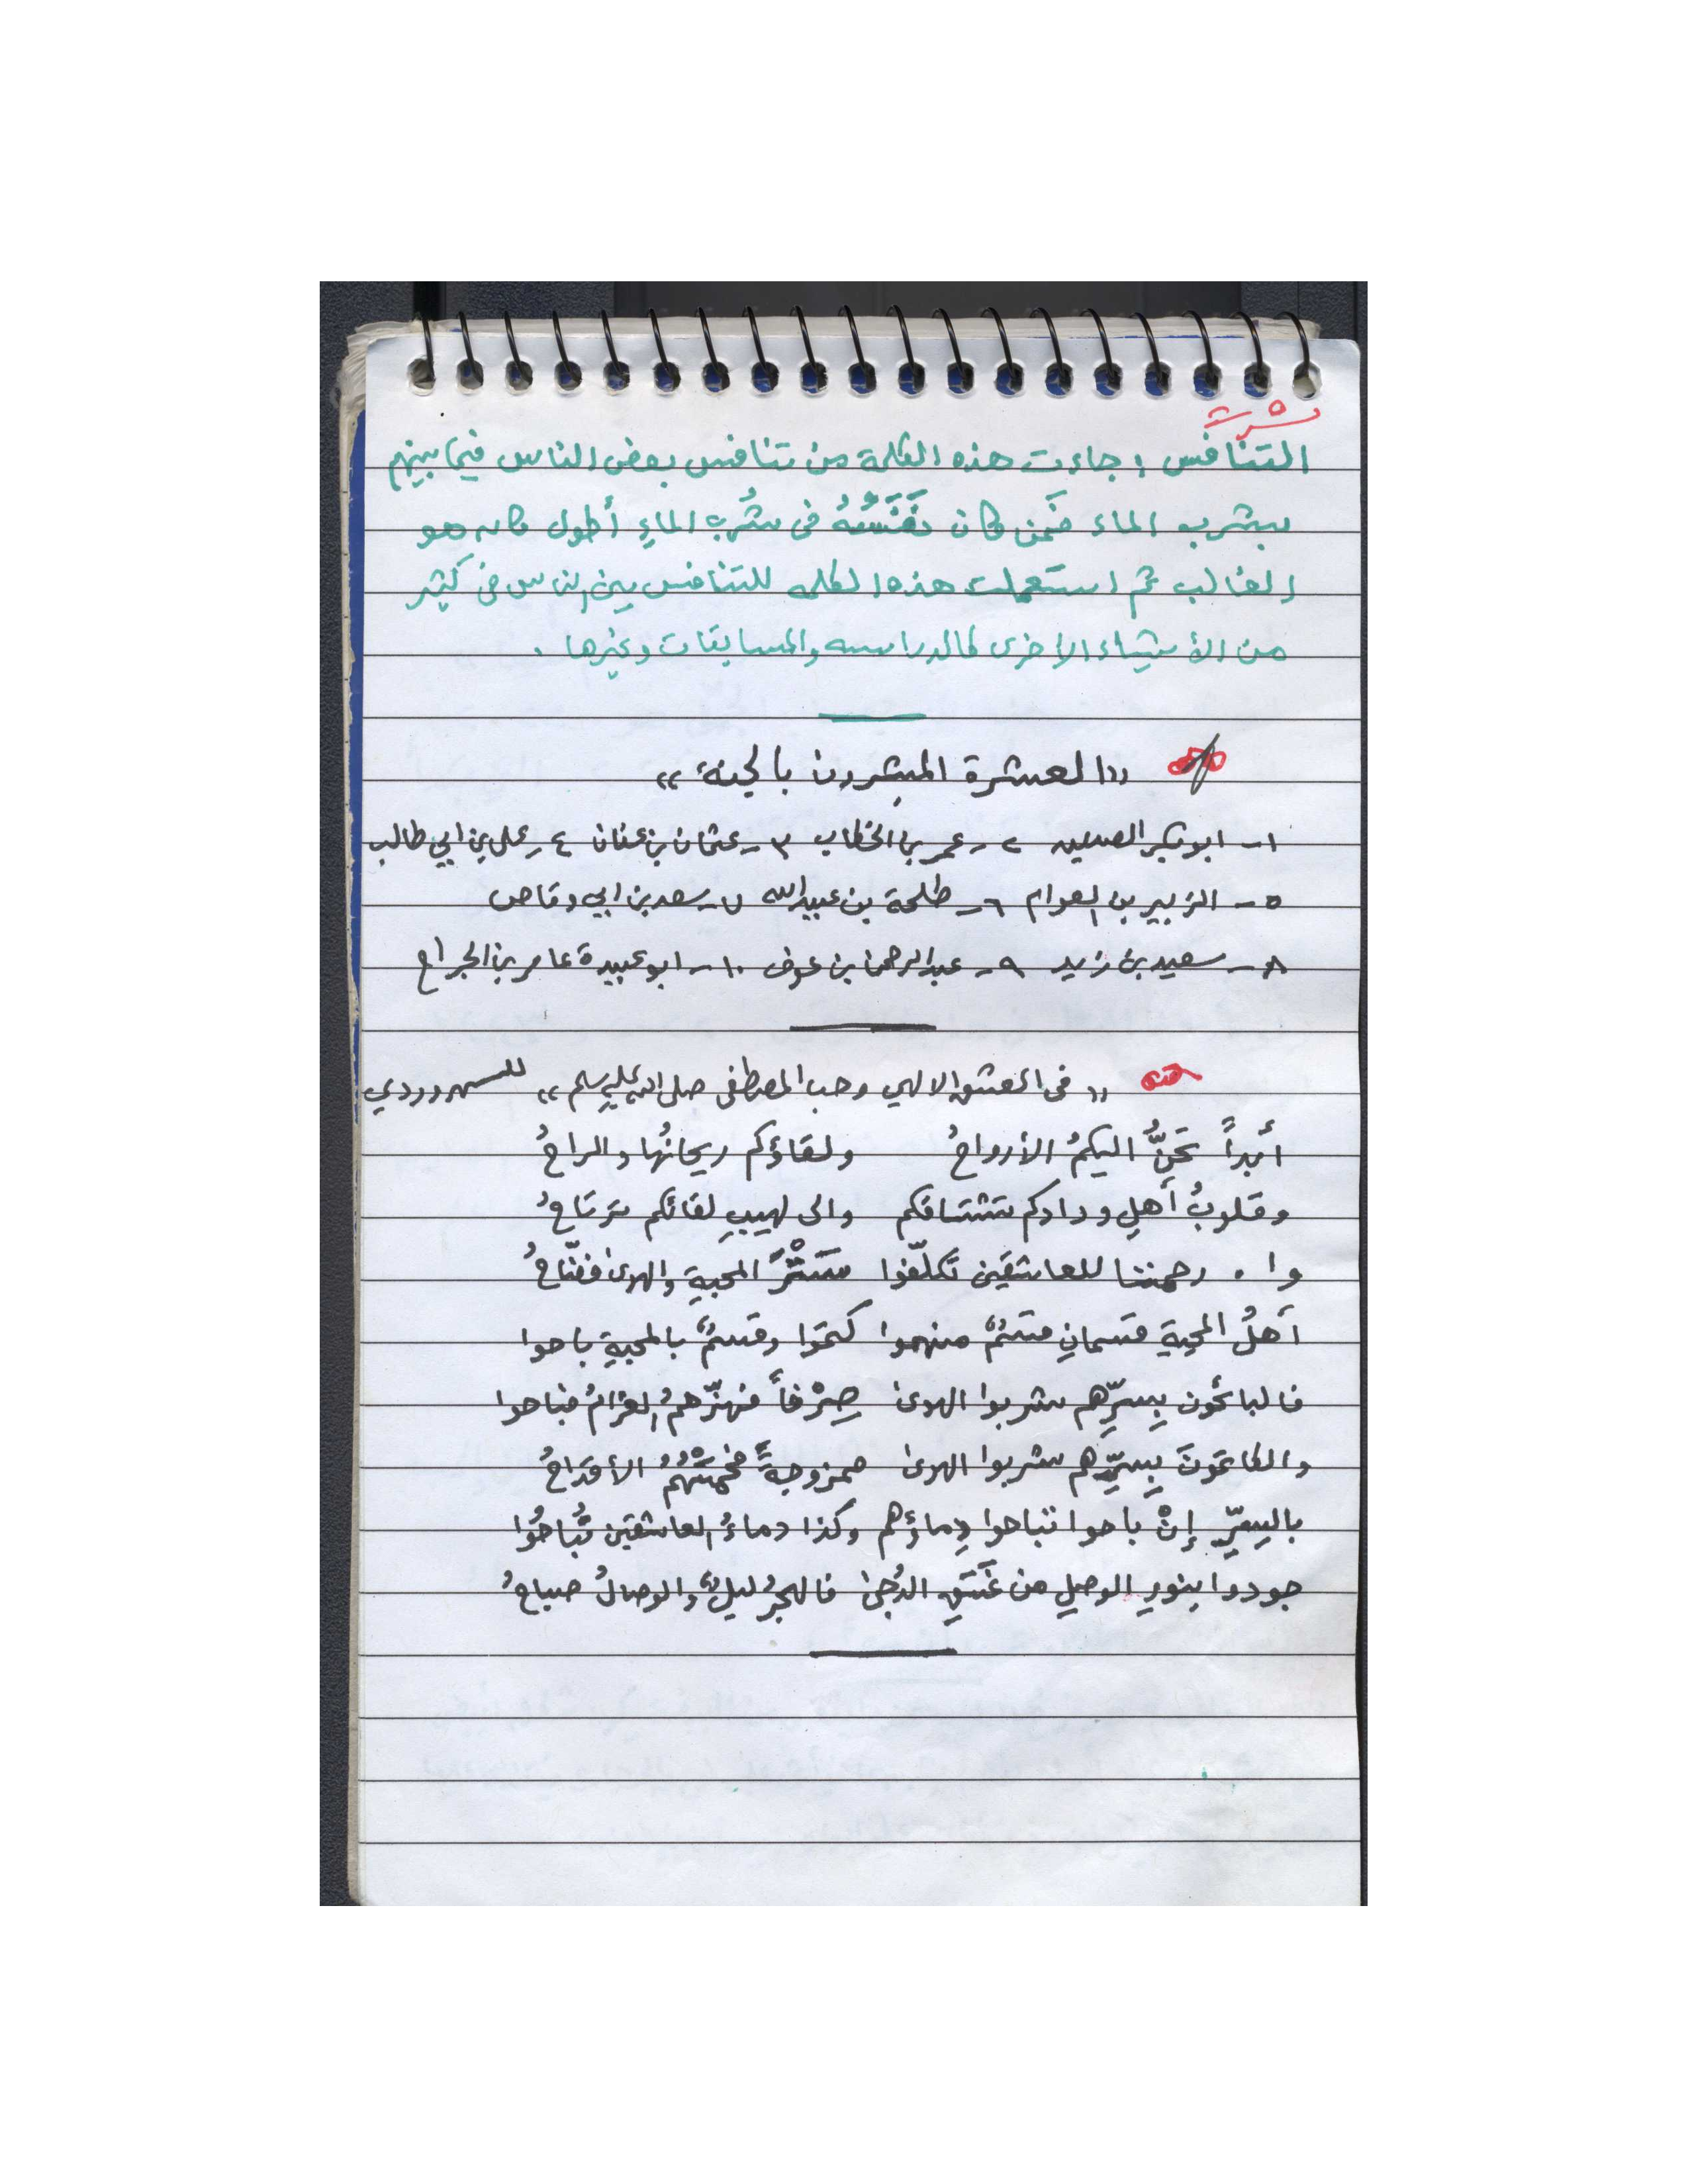 التنافس : جاءت هذه الكلمة من تنافس بعض الناس فيما بينهم
بشرب الماء فَمَن كان نَفَسُهُ في شُرب الماءِ أطول كان هو
الغالب ثم استعملت هذه الكلمه للتنافس بين الناس في كثير
من الأشياء الاخرى كالدراسه والمسابقات وغيرها .
«العشرة المبشرون بالجنة»
١- ابو بكر الصديق ٢- عمر بن الخطاب ٣- عثمان بن عفان ٤- علي بن ابي طالب
٥- الزبير بن العوام ٦- طلحة بن عبيد الله ٧- سعد بن ابي وقاص
٨- سعيد بن زيد ٩- عبد الرحمن بن عوف ١٠- ابو عبيدة عامر بن الجراح
«في العشق الالهي وحب المصطفى صلى الله عليه وسلم» للسهروردي
أبداً تَحِنُّ اليكمُ الأرواحُ ولقاؤكم ريحانُها والراحُ
وقلوبُ أهلِ ودادكم تشتاقكم والى لهيبِ لقائكم ترتاحُ
وا . رحمتنا للعاشقين تكلّفوا سَتْرَ المحبةِ والهوىٰ فضّاحُ
أهلُ المحبة قسمانِ قسمٌ منهموا كتموا وقسمٌ بالمحبةِ باحوا
فالبائحون بِسرِّهم شربوا الهوىٰ صِرْفاً فهزّهمُ الغرامُ فباحوا
والكاتمونَ بِسرِّهم شربوا الهوىٰ ممزوجةً فحمتْهُمُ الأقداحُ
بالسِرِّ إنْ باحوا تباحوا دِماؤهم وكذا دماءُ العاشقين تُباحُوا
جودوا بنورِ الوصلِ من غَسَقِ الدُجىٰ فالهجرُ ليلٌ والوصالُ صباحُ